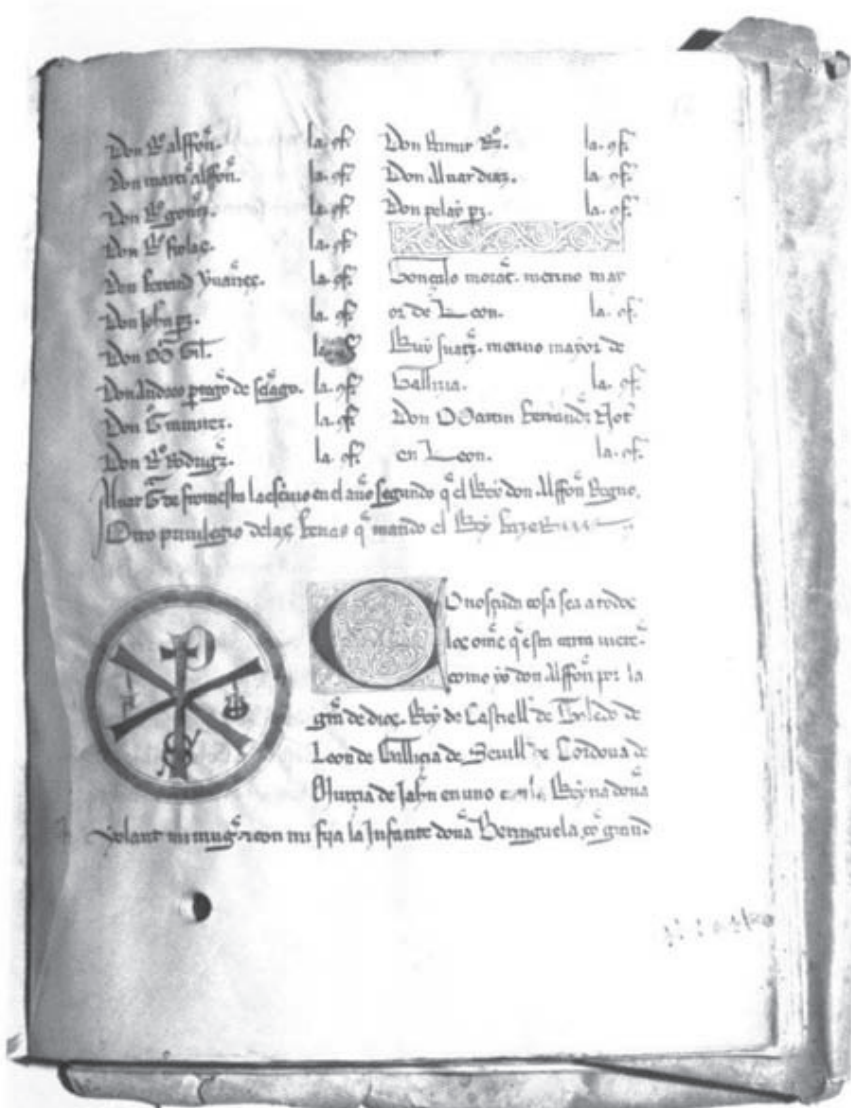 Don Rº alffon. la. ꝯf.
Don martĩ alffon. la. ꝯf.
Don Rº gom̃z. la. ꝯf.
Don Rº frolaz. la. ꝯf.
Don ferrand yuanez. la. ꝯf.
Don Johñ pz. la. ꝯf.
Don Gil. la. ꝯf.
Don Andreo de la. ꝯf.
Don la. ꝯf.
Don Rº Rodrigz. la. ꝯf.
Don Ramir Rz. la. ꝯf.
Don Aluar diaz. la. ꝯf.
Don pelay pz. la. ꝯf.
Gonçalo morãt. merino may
or de Leon. la. ꝯf.
Roy suarz. merino mayor de
Gallizia. la. ꝯf.
Don Martin ferrandz Not̃
en Leon. la. ꝯf.
Aluar Gz̃ de fromesta la escriuio en el año segundo q̃ el Rey don Alffon Regno.
Otro priuilegio delas ferias q̃ mando el Rey fazer
Conosçuda cosa sea a todos
los om̃e q̃ esta carta uierẽ.
como yo don Alffon por la
grã de dios. Rey de Castiella de Toledo de
Leon de Gallizia de Seuilla de Cordoua de
Murçia de Jahñ en uno con la Reyna doña
yolant mi mugr̃ ⁊ con mi fija la Infante doña Berenguela. grand